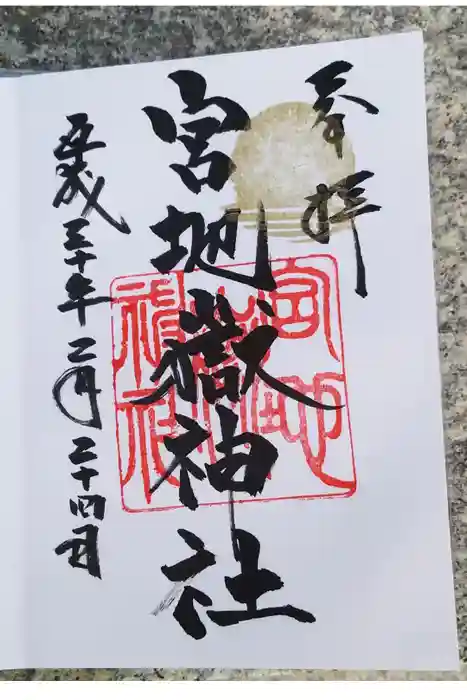 奉拝
宮地嶽神社
平成三十年二月二十四日
宮地嶽神社